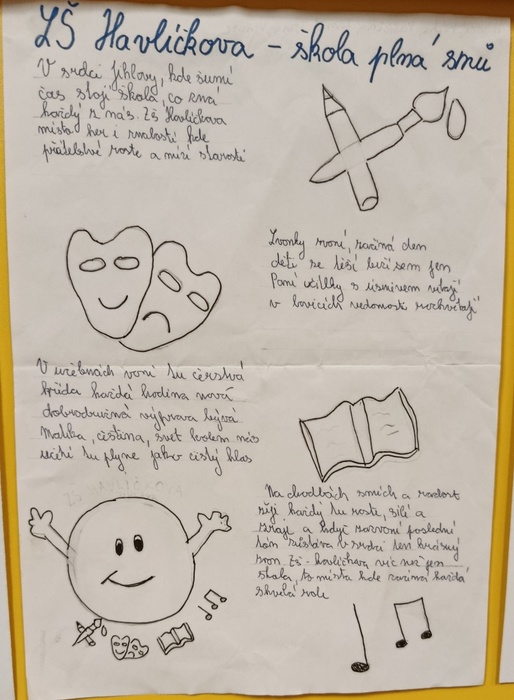 ZŠ Havlíčkova – škola plná snů
V srdci Jihlavy, kde šumí
čas stojí škola, co zná
každý z nás. ZŠ Havlíčkova
místo her i znalostí kde
přátelství roste a mizí starosti
Zvonky zvoní, začíná den
děti se těší běží sem jen
Paní učitelky s úsměvem vítají
v lavicích vědomosti rozkvétají
V učebnách voní tu čerstvá
křída každá hodina nová
dobrodružná výprava bývá
Matika, čeština, svět kolem nás
učení tu plyne jako čistý hlas
Na chodbách smích a radost
zijí každý tu roste, sílí a
zraje a když zazvoní poslední
tón zůstává v srdci ten krásný
zvon ZŠ - Havlíčkova víc než jen
škola, to místo kde začíná každá
skvělá role